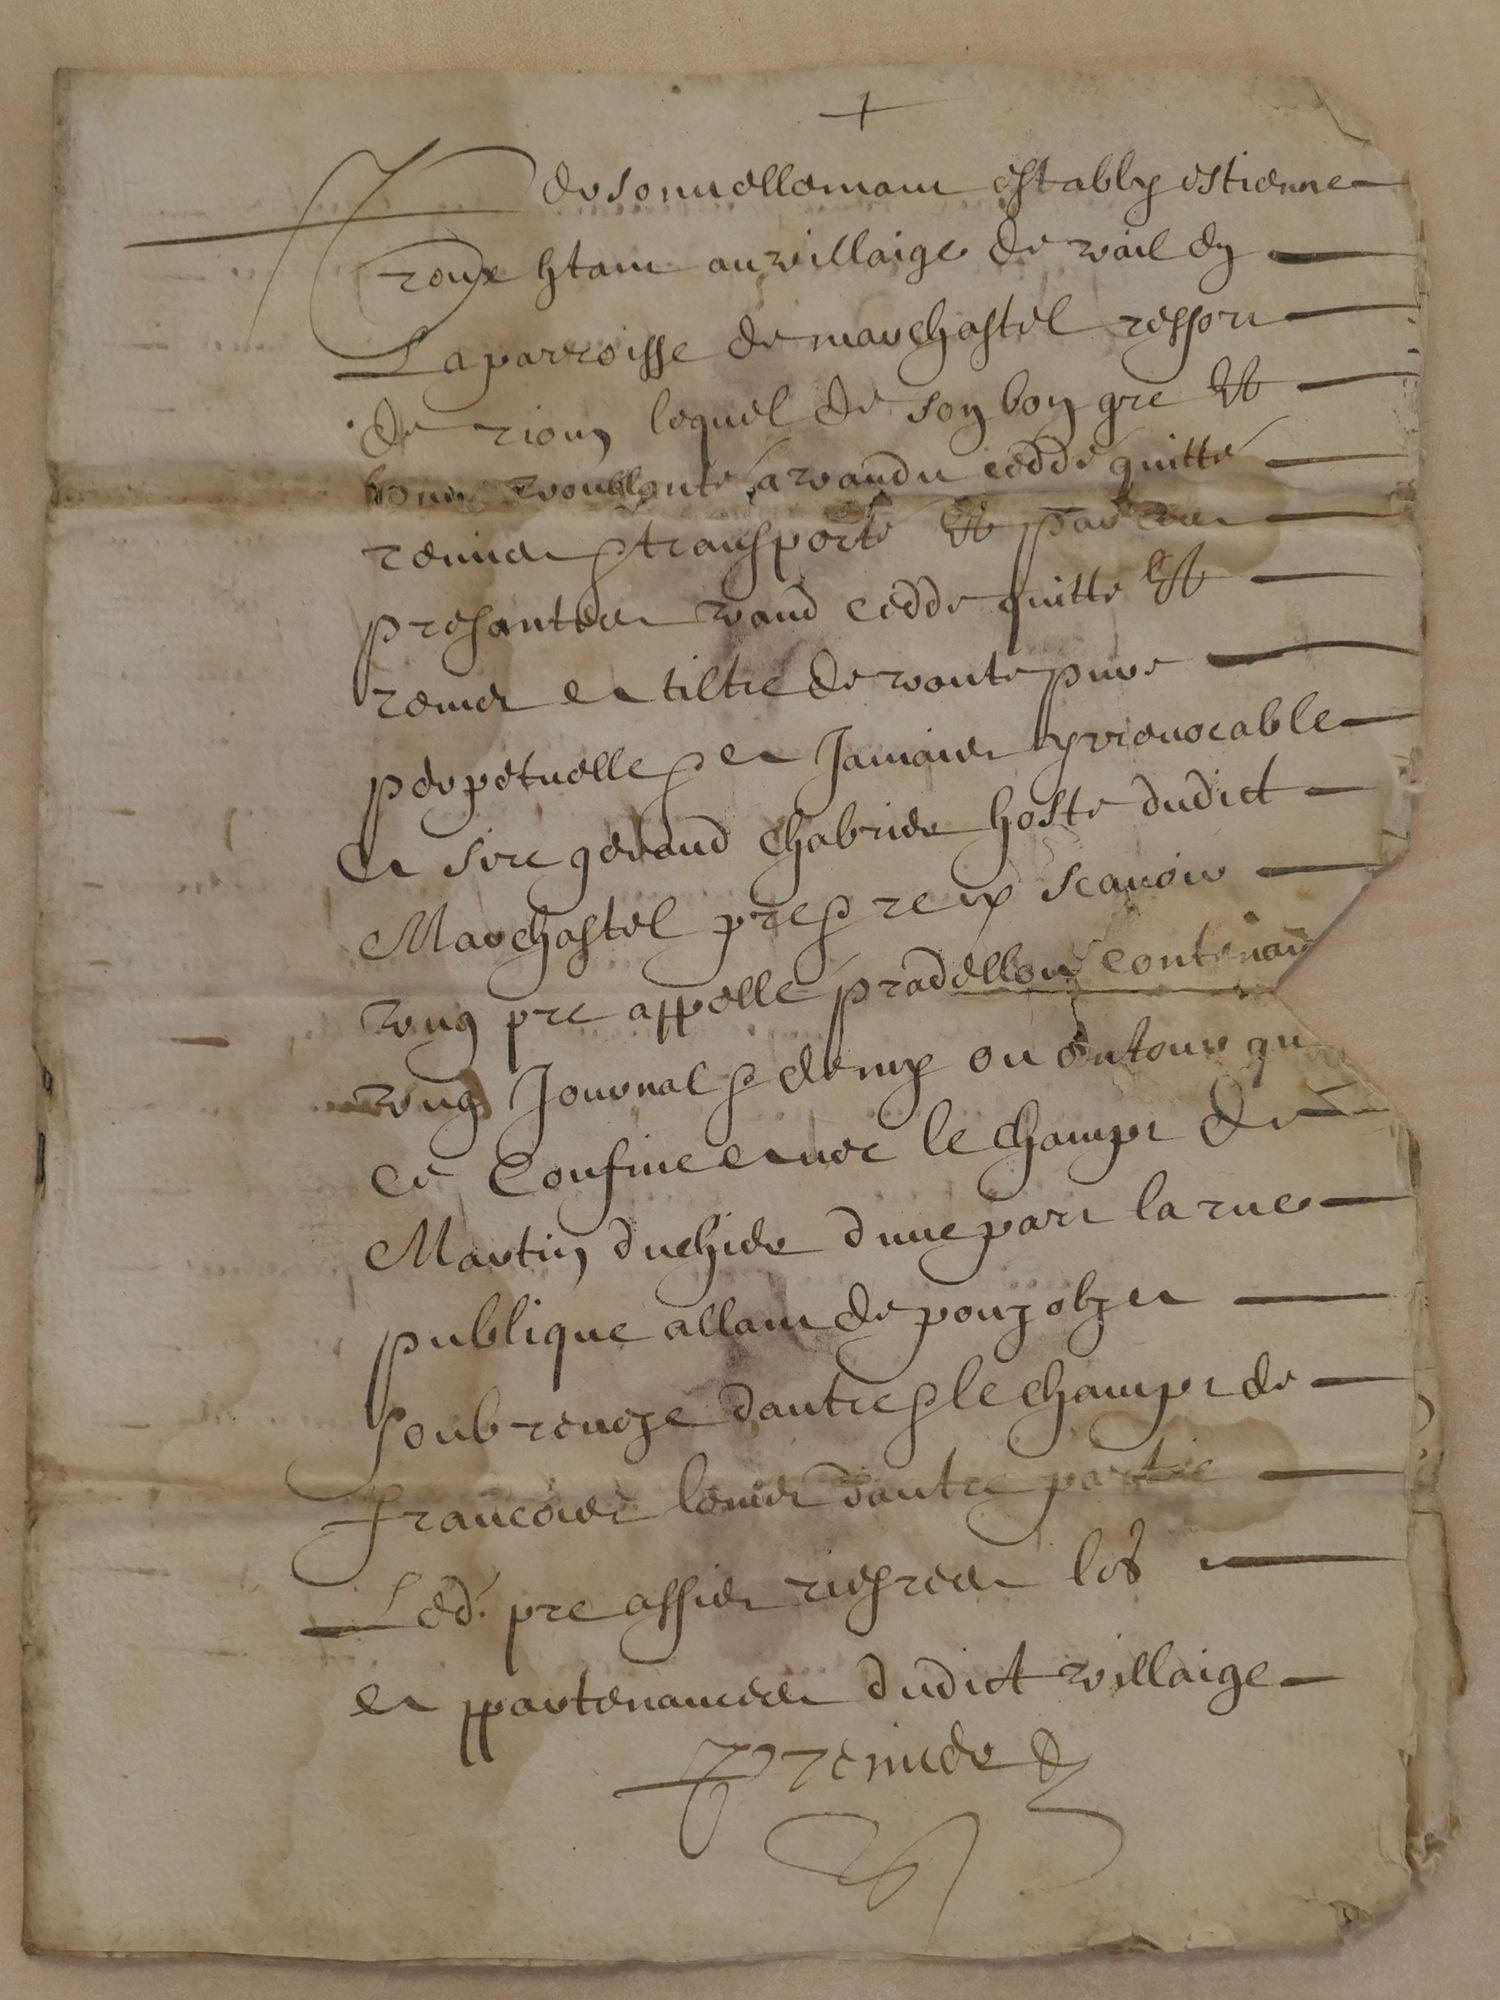 +
Personnellemant estably estienne
roux htant au villaige de vail dy
La parroisse de marchastel ressort
de riom lequel de son bon gre et
bonne voullonté a vandu ceddé quitté
remis et transporté et par ces
presantes vand cedde quitte et
remet a tiltre de vante pure
perpetuelle et a Jamais yrrevocable
a sire geraud Chabrier hoste dudict
Marchastel pres et scavoir
ung pre appelle pradellou contenan
ung Journal et demy ou entour qu
ce Confine avec le champt de
Martin duchier dune part la rue
publique allant de pouzolz a
soubreveze dautre et le champt de
francois dautre partie
Led. pre assis riesres les
appartenances dudict villaige